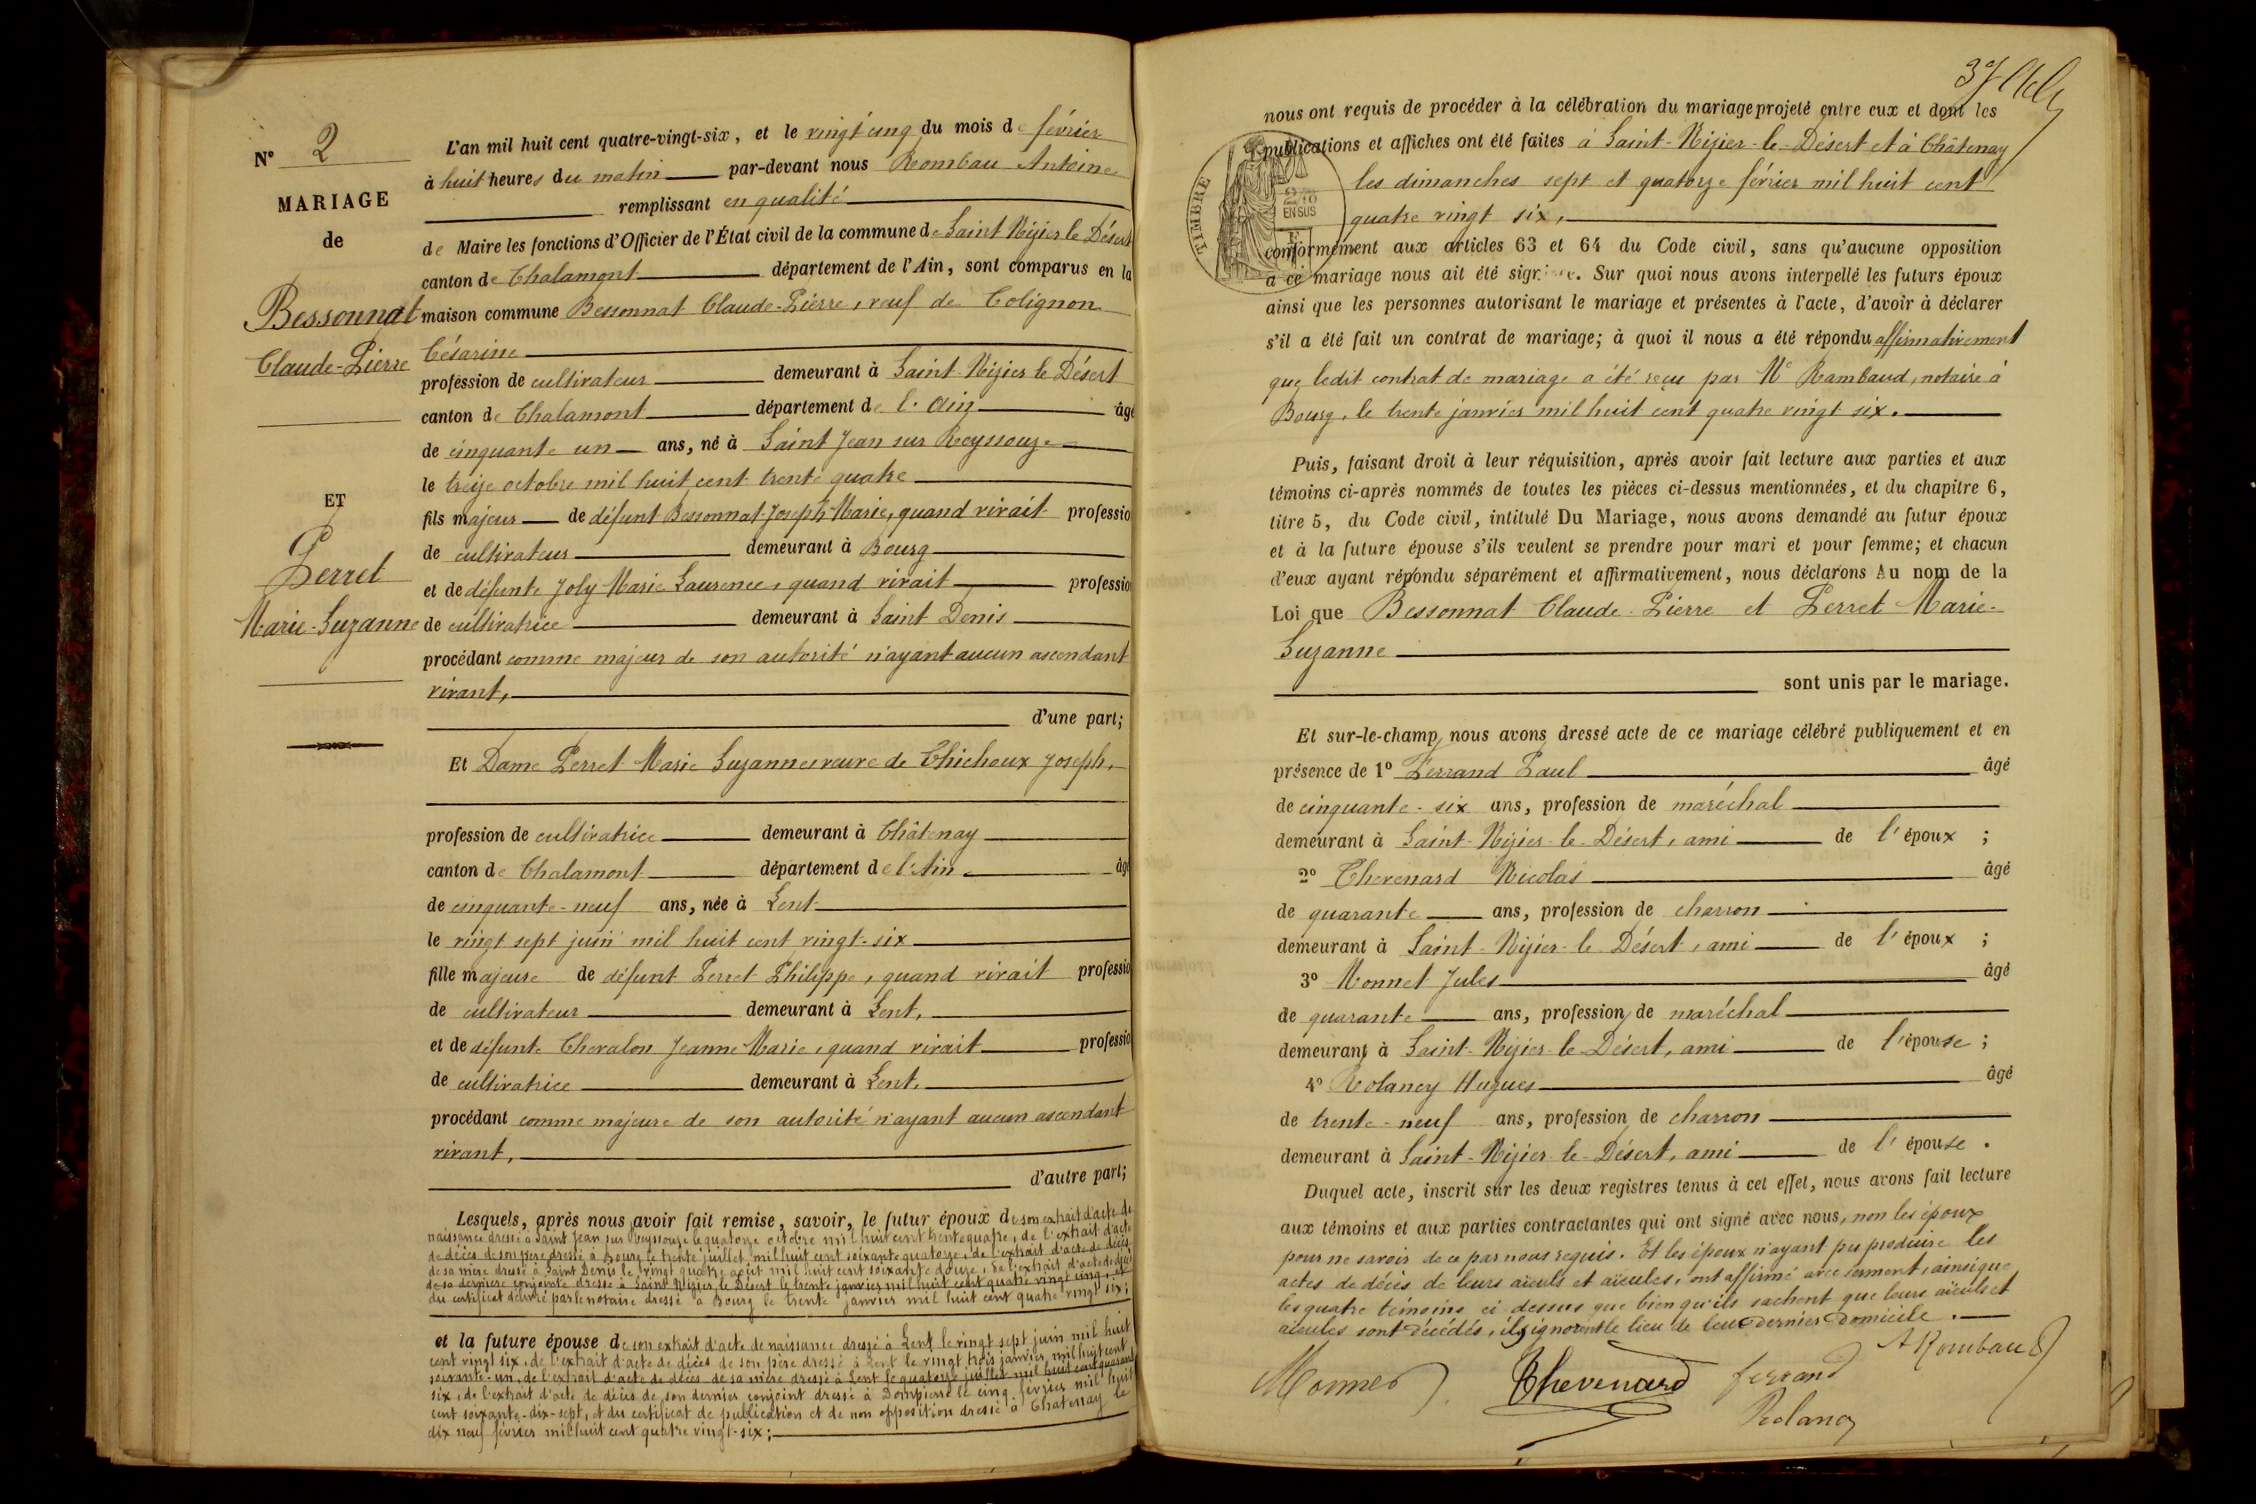 N° 2
MARIAGE
de
Bessonnat
Claude-Pierre
ET
Perret
Marie-Suzanne
L'an mil huit cent quatre-vingt-six, et le vingt cinq du mois de février
à huit heures du matin par-devant nous Rombau Antoine
remplissant en qualité
de Maire les fonctions d'Officier de l'État civil de la commune de Saint Nizier le Désert
canton de Chalamont département de l'Ain, sont comparus en la
maison commune Bessonnat Claude-Pierre, veuf de Colignon
Césarine
profession de cultivateur demeurant à Saint Nizier le Désert
canton de Chalamont département de l'Ain âgé
de cinquante un ans, né à Saint Jean sur Reyssouze
le treize octobre mil huit cent trente quatre
fils majeur de défunt Bessonnat Joseph Marie, quand vivait professio
de cultivateur demeurant à Bourg
et de défunte Joly Marie Laurence, quand vivait professio
de cultivatrice demeurant à Saint Denis
procédant comme majeur de son autorité n'ayant aucun ascendant
vivant,
d'une part;
Et Dame Perret Marie Suzanne veuve de Chichoux Joseph,
profession de cultivatrice demeurant à Châtenay
canton de Chalamont département de l'Ain âgé
de cinquante-neuf ans, née à Lent
le vingt sept juin mil huit cent vingt-six
fille majeure de défunt Perret Philippe, quand vivait professio
de cultivateur demeurant à Lent,
et de défunte Chevalon Jeanne Marie, quand vivait professio
de cultivatrice demeurant à Lent,
procédant comme majeure de son autorité n'ayant aucun ascendant
vivant,
d'autre part;
Lesquels, après nous avoir fait remise, savoir, le futur époux de son extrait d'acte de
naissance dressé à Saint Jean sur Reyssouze le quatorze octobre mil huit cent trente quatre, de l'extrait d'acte
de décès de son père dressé à Bourg le trente juillet mil huit cent soixante quatorze, de l'extrait d'acte de décès
de sa mère dressé à Saint Denis le vingt quatre août mil huit cent soixante douze, de l'extrait d'acte de décès
de sa dernière conjointe dressé à Saint Nizier le Désert le trente janvier mil huit cent quatre vingt cinq, et
du certificat délivré par le notaire dressé à Bourg le trente janvier mil huit cent quatre vingt six;
et la future épouse de son extrait d'acte de naissance dressé à Lent le vingt sept juin mil huit
cent vingt six, de l'extrait d'acte de décès de son père dressé à Lent le vingt trois janvier mil huit cent
soixante-un, de l'extrait d'acte de décès de sa mère dressé à Lent le quatorze juillet mil huit cent quarante
six, de l'extrait d'acte de décès de son dernier conjoint dressé à Dompierre le cinq février mil huit
cent soixante-dix-sept, et du certificat de publication et de non opposition dressé à Chatenay le
dix neuf février mil huit cent quatre vingt-six;
nous ont requis de procéder à la célébration du mariage projeté entre eux et dont les
publications et affiches ont été faites à Saint-Nizier-le-Désert et à Châtenay
les dimanches sept et quatorze février mil huit cent
quatre vingt six,
TIMBRE
EN SUS
conformément aux articles 63 et 64 du Code civil, sans qu'aucune opposition
à ce mariage nous ait été signifiée. Sur quoi nous avons interpellé les futurs époux
ainsi que les personnes autorisant le mariage et présentes à l'acte, d'avoir à déclarer
s'il a été fait un contrat de mariage; à quoi il nous a été répondu affirmativement
que ledit contrat de mariage a été reçu par Me Rambaud, notaire à
Bourg, le trente janvier mil huit cent quatre vingt six.
Puis, faisant droit à leur réquisition, après avoir fait lecture aux parties et aux
témoins ci-après nommés de toutes les pièces ci-dessus mentionnées, et du chapitre 6,
titre 5, du Code civil, intitulé Du Mariage, nous avons demandé au futur époux
et à la future épouse s'ils veulent se prendre pour mari et pour femme; et chacun
d'eux ayant répondu séparément et affirmativement, nous déclarons Au nom de la
Loi que Bessonnat Claude-Pierre et Perret Marie-
Suzanne
sont unis par le mariage.
Et sur-le-champ, nous avons dressé acte de ce mariage célébré publiquement et en
présence de 1° Ferrand Paul âgé
de cinquante-six ans, profession de maréchal
demeurant à Saint-Nizier-le-Désert, ami de l'époux ;
2° Thevenard Nicolas âgé
de quarante ans, profession de charron
demeurant à Saint-Nizier-le Désert, ami de l'époux ;
3° Monnet Jules âgé
de quarante ans, profession de maréchal
demeurant à Saint-Nizier-le-Désert, ami de l'épouse ;
4° Rolancy Hugues âgé
de trente-neuf ans, profession de charron
demeurant à Saint-Nizier-le-Désert, ami de l'épouse .
Duquel acte, inscrit sur les deux registres tenus à cet effet, nous avons fait lecture
aux témoins et aux parties contractantes qui ont signé avec nous, non les époux
pour ne savoir de ce par nous requis. Et les époux n'ayant pu produire les
actes de décès de leurs aïeuls et aïeules, ont affirmé avec serment, ainsi que
les quatre témoins ci dessus que bien qu'ils sachent que leurs aïeuls et
aïeules sont décédés, ils ignorent le lieu de leur dernier domicile.
A Rombau
Monnet Thevenard ferrand
Rolancy